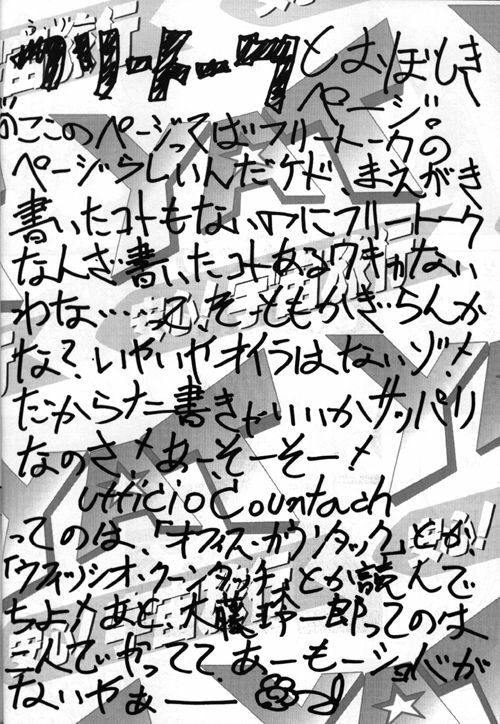 フリートーク とおぼしき
ページ。
ここのページってばフリートークの
ページらしいんだケド、まえがき
書いたコトもないのにフリートーク
なんざ書いたコトあるワキゃない
わな…って、そーともかぎらんか
な?いやいやオイラはないゾ!
だからなに書きゃいいかサッパリ
なのさ!あ、そーそー!
Ufficio Countach
ってのは、「オフィス・カウンタック」とか
「ウフィッシオ・クーンタッチ」とか読んで
ちょ!あと、大藤玲一郎ってのは
二人でやってて、あーもーショバが
ないやぁ——